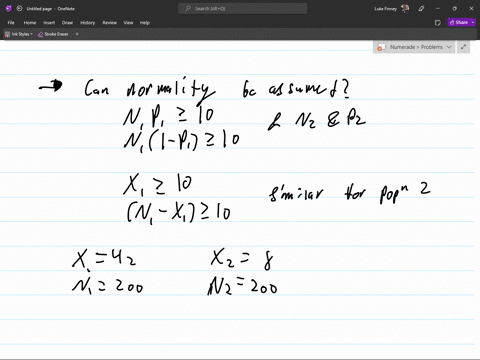 Untitled page - OneNote
Search
Luke Finney
File Home Insert Draw History Review View Help
Share
Ink Styles Stroke Eraser
Numerade > Problems
→ Can normality be assumed?
N₁P₁ ≥ 10
& N₂ & P₂
N₁(1-P₁) ≥ 10
X₁ ≥ 10
similar for popⁿ 2
(N₁-X₁) ≥ 10
X₁ = 42 X₂ = 8
N₁ = 200 N₂ = 200